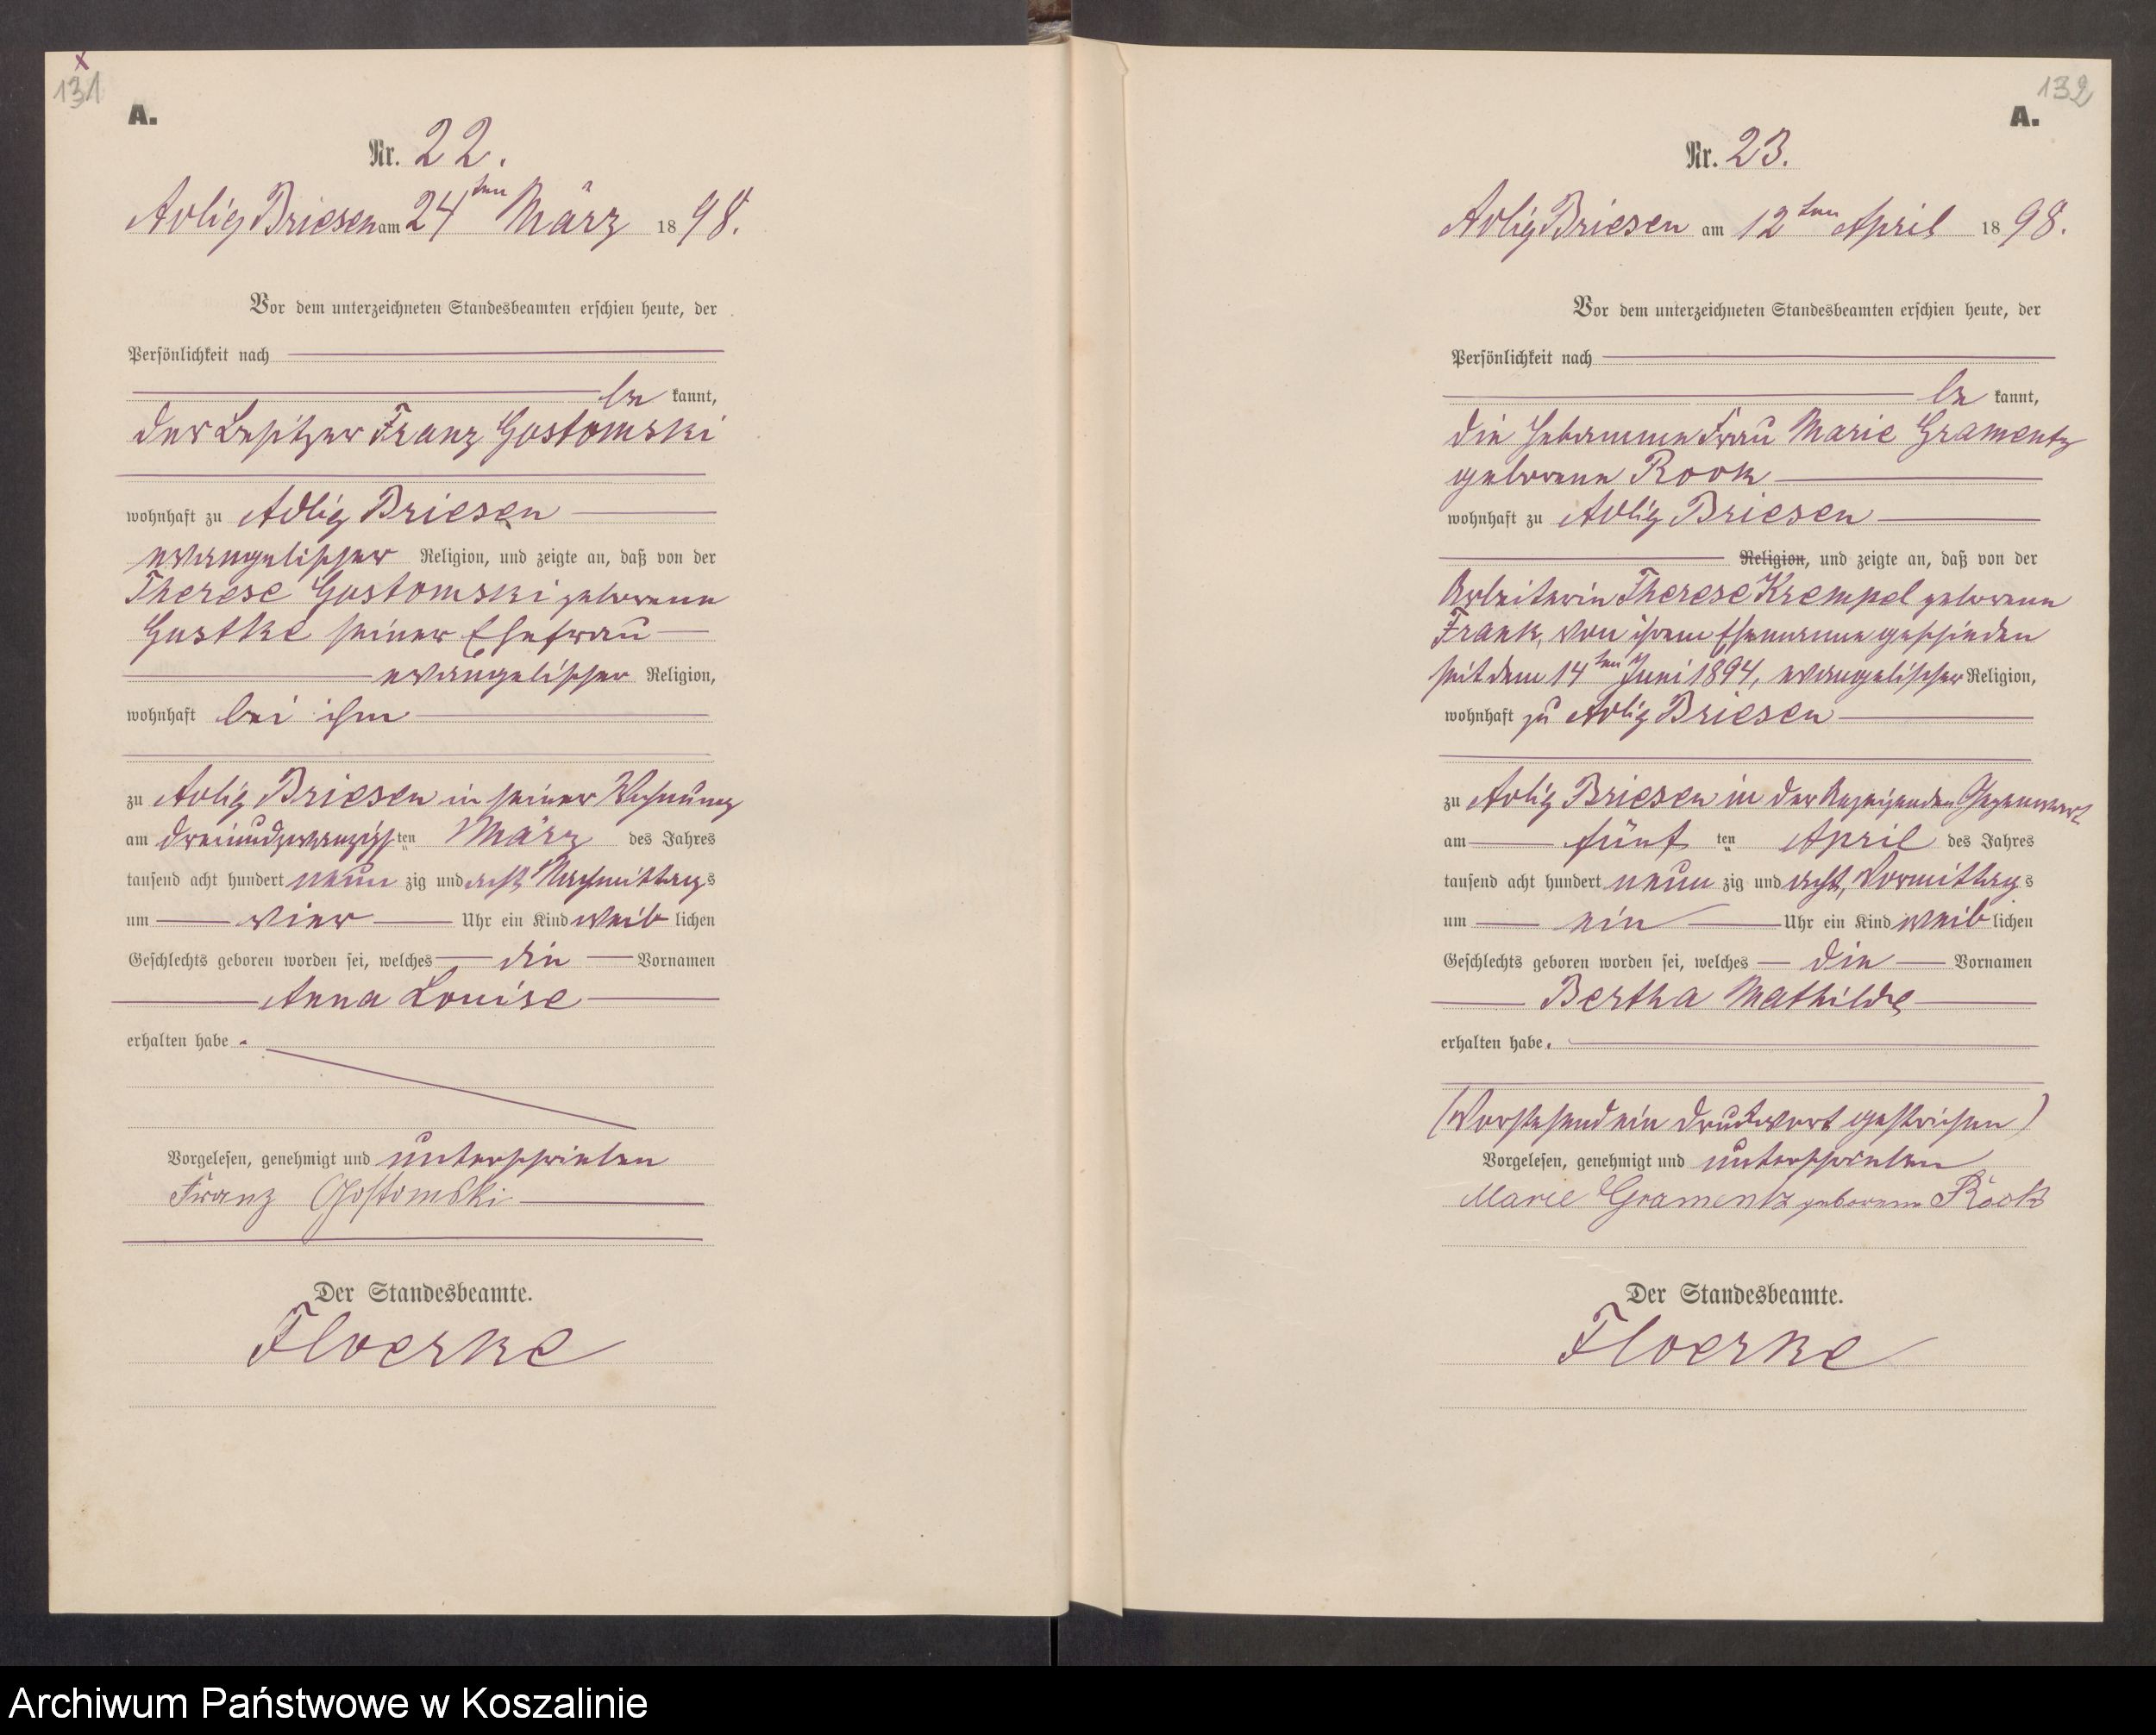 131
A.
Nr. 22.
Adlig Briesen am 24ten März 1898.
Vor dem unterzeichneten Standesbeamten erschien heute, der
Persönlichkeit nach
be kannt,
der Besitzer Franz Gostomski
wohnhaft zu Adlig Briesen
evangelischer Religion, und zeigte an, daß von der
Therese Gostomski geborene
Gustke seiner Ehefrau
evangelischer Religion,
wohnhaft bei ihm
zu Adlig Briesen in seiner Wohnung
am dreiundzwanzigsten März des Jahres
tausend acht hundert neun zig und acht Nachmittags
um vier Uhr ein Kind weib lichen
Geschlechts geboren worden sei, welches die Vornamen
Anna Louise
erhalten habe.
Vorgelesen, genehmigt und unterschrieben
Franz Gostomski
Der Standesbeamte.
Floerke
132
A.
Nr. 23.
Adlig Briesen am 12ten April 1898.
Vor dem unterzeichneten Standesbeamten erschien heute, der
Persönlichkeit nach
be kannt,
die Hebamme Frau Marie Gramentz
geborene Rook
wohnhaft zu Adlig Briesen
Religion, und zeigte an, daß von der
Arbeiterin Therese Krempel geborene
Frank, von ihrem Ehemanne geschieden
seit dem 14ten Juni 1894, evangelischer Religion,
wohnhaft zu Adlig Briesen
zu Adlig Briesen in der Anzeigenden Gegenwart
am fünf ten April des Jahres
tausend acht hundert neun zig und acht, Vormittags
um ein Uhr ein Kind weib lichen
Geschlechts geboren worden sei, welches die Vornamen
Bertha Mathilde
erhalten habe.
(Vorstehend ein Druckwort gestrichen)
Vorgelesen, genehmigt und unterschrieben
Marie Gramentz geborene Rook
Der Standesbeamte.
Floerke
Archiwum Państwowe w Koszalinie